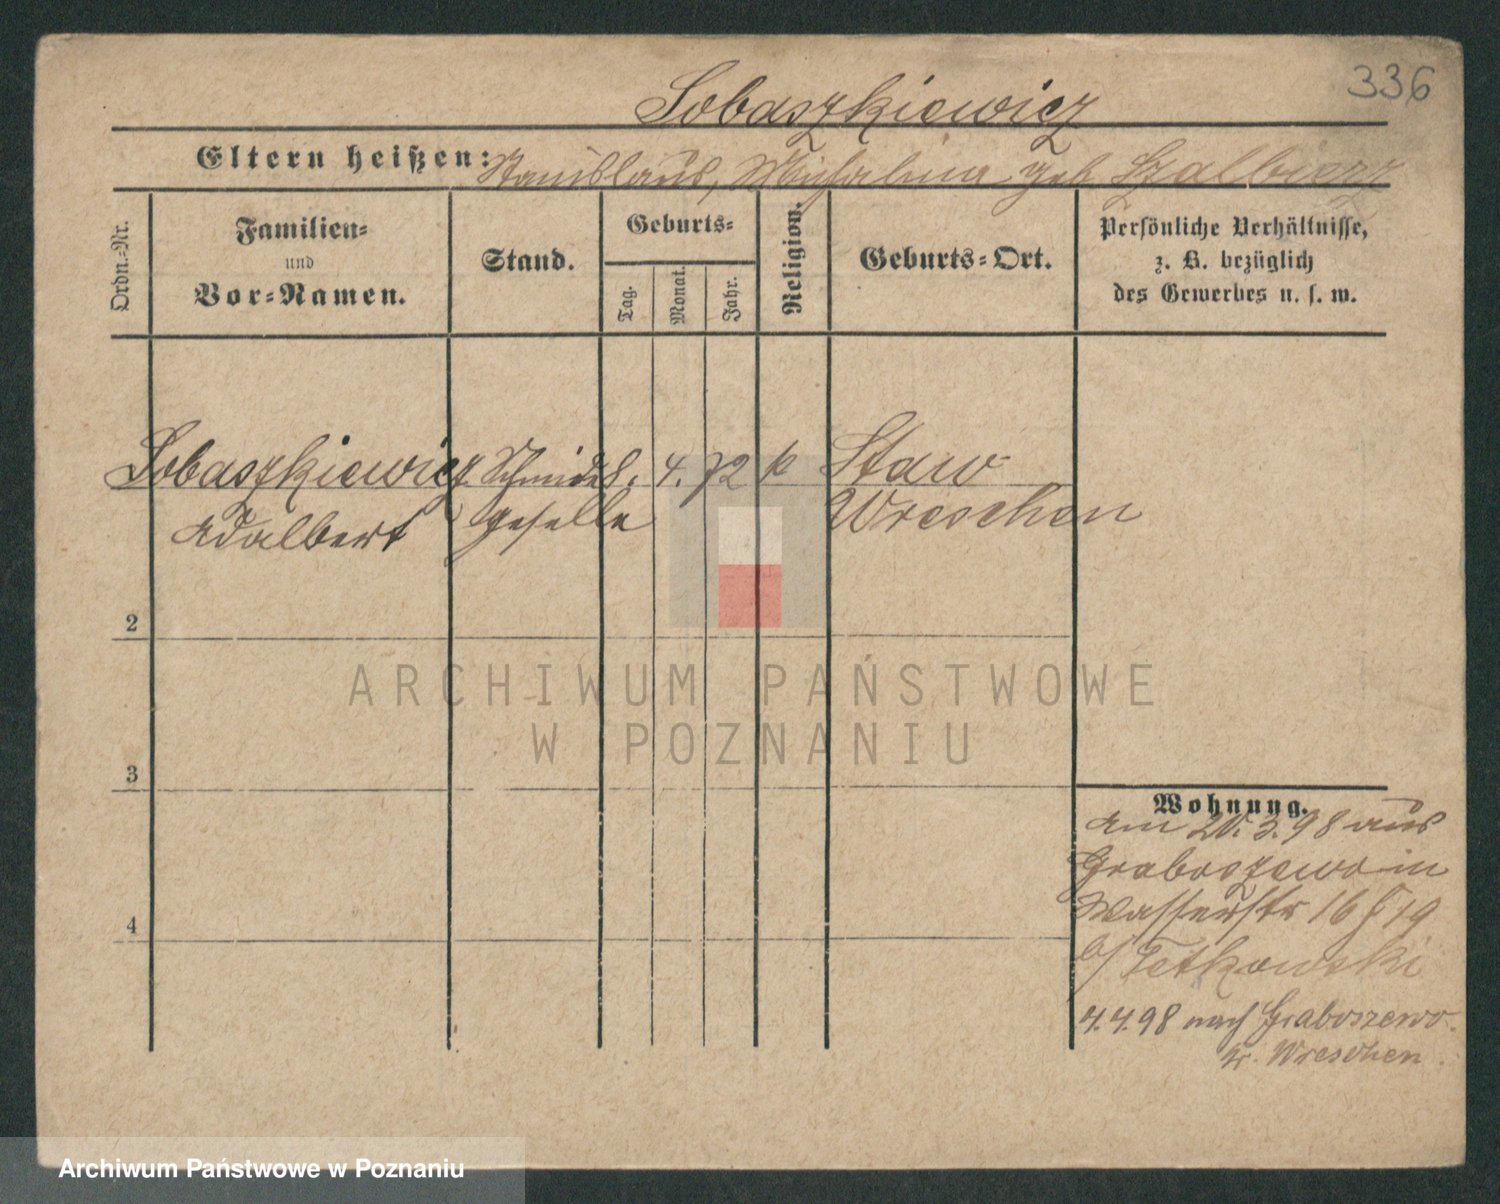 336
Sobaszkiewicz
Eltern heißen: Stanislaus, Michalina geb
Ordn.-Nr.
Familien-
und
Vor-Namen.
Stand.
Geburts-
Tag.
Monat.
Jahr.
Religion.
Geburts-Ort.
Persönliche Verhältnisse,
z. B. bezüglich
des Gewerbes u. s. w.
Sobaszkiewicz Schmiede 8. 4. 72 k Staw
Adalbert geselle Wreschen
2
ARCHIWUM PAŃSTWOWE
W POZNANIU
3
Wohnung.
am 20. 3. 98 aus
Graboszewo in
Wasserstr 16 19
b/ Tetkowski
4
4.4.98 nach Graboszewo
Kr. Wreschen.
Archiwum Państwowe w Poznaniu